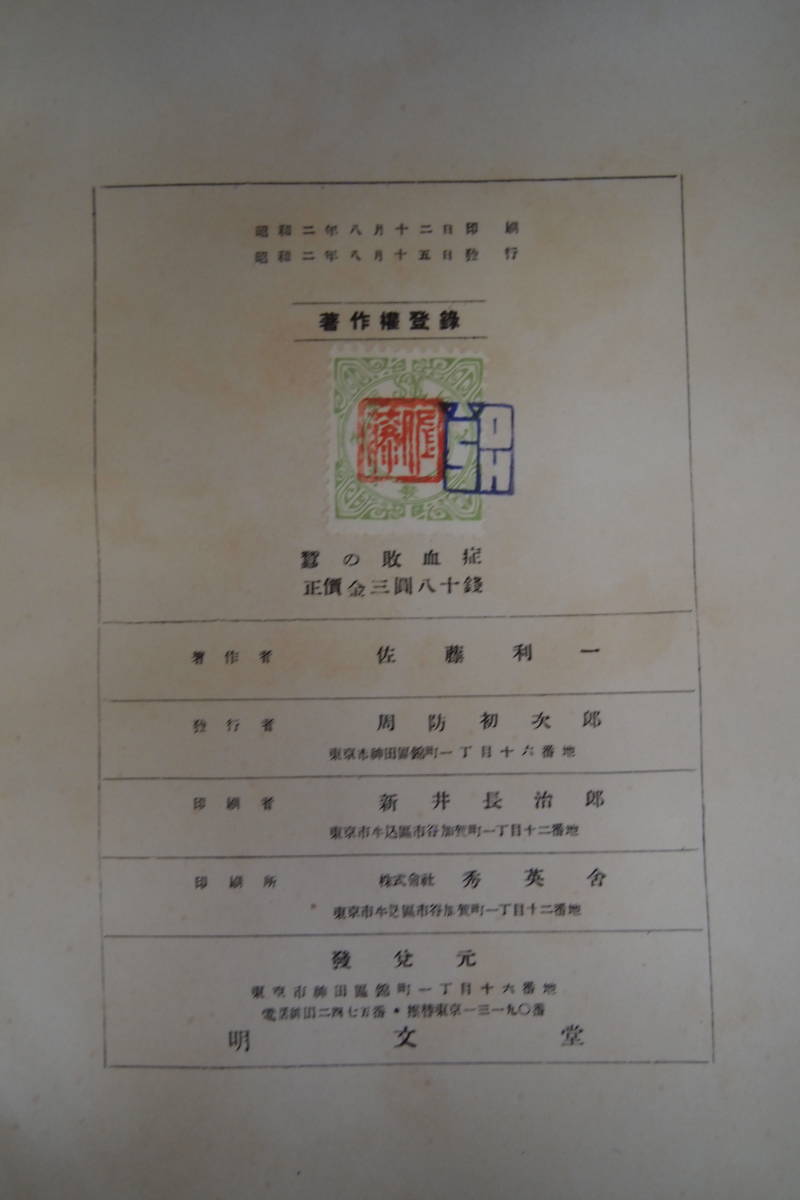 昭和二年八月十二日印刷
昭和二年八月十五日發行
著作權登錄
蠶の敗血症
正價金三圓八十錢
著作者 佐藤利一
發行者 周防初次郎
東京市神田區錦町一丁目十六番地
印刷者 新井長治郎
東京市牛込區市谷加賀町一丁目十二番地
印刷所 株式會社 秀英舍
東京市牛込區市谷加賀町一丁目十二番地
發兌元
東京市神田區錦町一丁目十六番地
電話神田二四七五番・振替東京一三一九〇番
明文堂